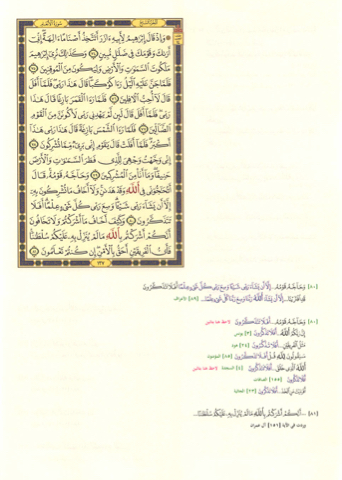 سورة الأنعام
الجزء السابع
وَإِذْ قَالَ إِبْرَٰهِيمُ لِأَبِيهِ ءَازَرَ أَتَتَّخِذُ أَصْنَامًا ءَالِهَةً إِنِّىٓ
أَرَىٰكَ وَقَوْمَكَ فِى ضَلَٰلٍ مُّبِينٍ ٧٤ وَكَذَٰلِكَ نُرِىٓ إِبْرَٰهِيمَ
مَلَكُوتَ ٱلسَّمَٰوَٰتِ وَٱلْأَرْضِ وَلِيَكُونَ مِنَ ٱلْمُوقِنِينَ ٧٥
فَلَمَّا جَنَّ عَلَيْهِ ٱلَّيْلُ رَءَا كَوْكَبًا قَالَ هَٰذَا رَبِّى فَلَمَّآ أَفَلَ
قَالَ لَآ أُحِبُّ ٱلْءَافِلِينَ ٧٦ فَلَمَّا رَءَا ٱلْقَمَرَ بَازِغًا قَالَ هَٰذَا
رَبِّى فَلَمَّآ أَفَلَ قَالَ لَئِن لَّمْ يَهْدِنِى رَبِّى لَأَكُونَنَّ مِنَ ٱلْقَوْمِ
ٱلضَّآلِّينَ ٧٧ فَلَمَّا رَءَا ٱلشَّمْسَ بَازِغَةً قَالَ هَٰذَا رَبِّى هَٰذَآ
أَكْبَرُ فَلَمَّآ أَفَلَتْ قَالَ يَٰقَوْمِ إِنِّى بَرِىٓءٌ مِّمَّا تُشْرِكُونَ ٧٨
إِنِّى وَجَّهْتُ وَجْهِىَ لِلَّذِى فَطَرَ ٱلسَّمَٰوَٰتِ وَٱلْأَرْضَ
حَنِيفًا وَمَآ أَنَا۠ مِنَ ٱلْمُشْرِكِينَ ٧٩ وَحَآجَّهُۥ قَوْمُهُۥ قَالَ
أَتُحَٰٓجُّوٓنِّى فِى ٱللَّهِ وَقَدْ هَدَىٰنِ وَلَآ أَخَافُ مَا تُشْرِكُونَ بِهِۦٓ
إِلَّآ أَن يَشَآءَ رَبِّى شَيْـًٔا وَسِعَ رَبِّى كُلَّ شَىْءٍ عِلْمًا أَفَلَا
تَتَذَكَّرُونَ ٨٠ وَكَيْفَ أَخَافُ مَآ أَشْرَكْتُمْ وَلَا تَخَافُونَ
أَنَّكُمْ أَشْرَكْتُم بِٱللَّهِ مَا لَمْ يُنَزِّلْ بِهِۦ عَلَيْكُمْ سُلْطَٰنًا
فَأَىُّ ٱلْفَرِيقَيْنِ أَحَقُّ بِٱلْأَمْنِ إِن كُنتُمْ تَعْلَمُونَ ٨١
١٣٧
[٨٠] وَحَآجَّهُۥ قَوْمُهُۥ ... إِلَّآ أَن يَشَآءَ رَبِّى شَيْـًٔا وَسِعَ رَبِّى كُلَّ شَىْءٍ عِلْمًا أَفَلَا تَتَذَكَّرُونَ
[٨٩] الأعراف
[٨٠] وَحَآجَّهُۥ قَوْمُهُۥ ... أَفَلَا تَتَذَكَّرُونَ
أَفَلَا تَذَكَّرُونَ [٣] يونس
أَفَلَا تَذَكَّرُونَ هود
سَيَقُولُونَ لِلَّهِ قُلْ أَفَلَا تَذَكَّرُونَ [٨٥] المؤمنون
أَفَلَا تَتَذَكَّرُونَ [٤] السجدة
أَفَلَا تَذَكَّرُونَ [١٥٥] الصافات
أَفَلَا تَذَكَّرُونَ [٢٣] الجاثية
[٨١] ... أَنَّكُمْ أَشْرَكْتُم بِٱللَّهِ مَا لَمْ يُنَزِّلْ بِهِۦ عَلَيْكُمْ سُلْطَٰنًا ...
وردت في الآية [١٥١] آل عمران